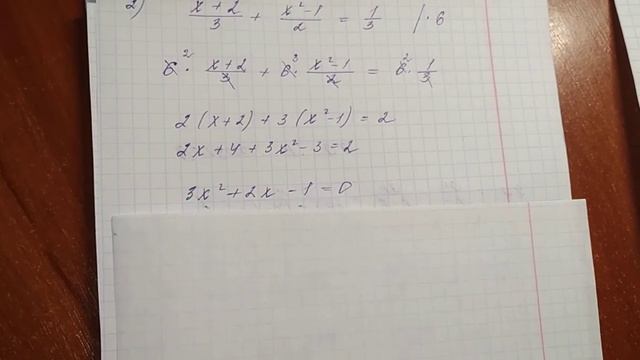 2) (x + 2)/3 + (x² - 1)/2 = 1/3 | · 6
6² · (x + 2)/3 + 6³ · (x² - 1)/2 = 6² · 1/3
2 (x + 2) + 3 (x² - 1) = 2
2x + 4 + 3x² - 3 = 2
3x² + 2x - 1 = 0